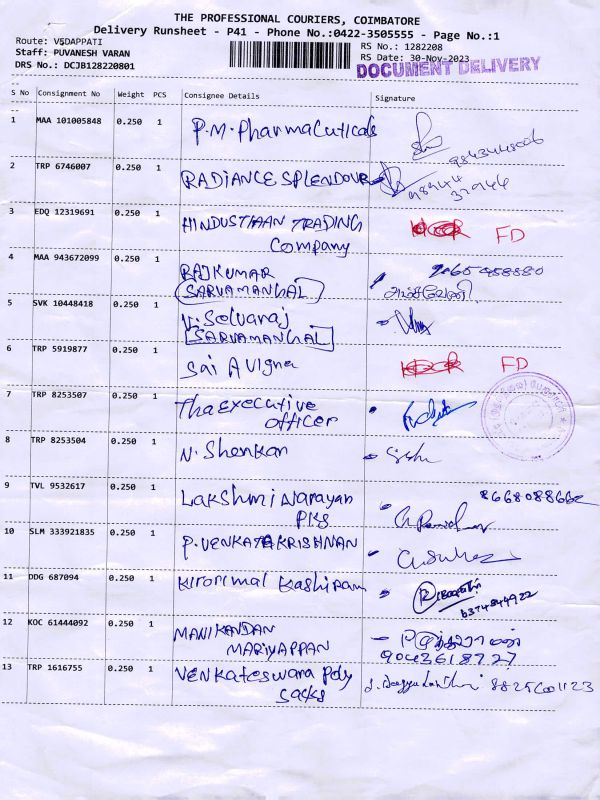 THE PROFESSIONAL COURIERS, COIMBATORE
Delivery Runsheet - P41 - Phone No.:0422-3505555 - Page No.:1
Route: VEDAPPATI
RS No.: 1282208
Staff: PUVANESH VARAN
RS Date: 30-Nov-2023
DRS No.: DCJB128220801
DOCUMENT DELIVERY
S No Consignment No Weight PCS Consignee Details Signature
1 MAA 101005848 0.250 1 P.M. Pharmaceuticals
2 TRP 6746007 0.250 1 RADIANCE SPLENDOUR 98944
37946
3 EDQ 12319691 0.250 1 HINDUSTHAAN TRADING FD
Company
4 MAA 943672099 0.250 1 RAJKUMAR
SARVAMANGAL
5 SVK 10448418 0.250 1 V. Selvaraj
SARVAMANGAL
6 TRP 5919877 0.250 1 Sai Avigna FD
7 TRP 8253507 0.250 1 The Executive
officer
8 TRP 8253504 0.250 1 N. Shenkar
9 TVL 9532617 0.250 1 Lakshmi Narayan 8668088662
Pks
10 SLM 333921835 0.250 1 P. VENKATAKRISHNAN
11 DDG 687094 0.250 1 Kirorimal Kashiram
6374844922
12 KOC 61444092 0.250 1 MANIKANDAN
MARIYAPPAN 9043618727
13 TRP 1616755 0.250 1 Venkateswara Poly
Sacks